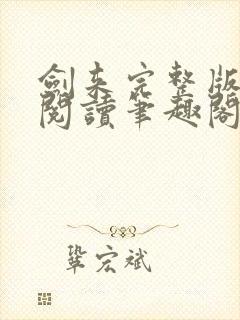 劍来完整版
閱讀筆趣閣
鞏宏斌